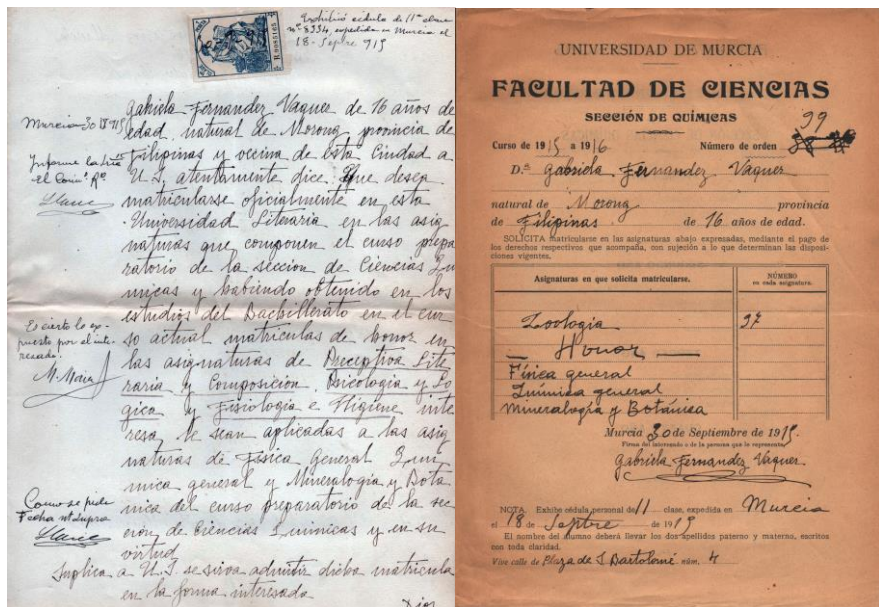 Exhibió cédula de 11ª clase
nº 8334, expedida en Murcia el
18 - Sepbre 915
R0085165
Murcia 30 IX 915
Informe la
el Com.º Rº
Es cierto lo ex-
puesto por el inte-
resado.
Como se pide
Fecha ut supra
Gabriela Fernandez Vaquer de 16 años de
edad, natural de Morong provincia de
Filipinas y vecina de esta Ciudad a
U.S. atentamente dice Que desea
matricularse oficialmente en esta
Universidad Literaria en las asig
naturas que componen el curso prepa
ratorio de la seccion de Ciencias Quí
micas y habiendo obtenido en los
estudios del Bachillerato en el cur
so actual matriculas de honor en
las asignaturas de Preceptiva Lite
raria y Composición, Psicologia y Ló
gica y Fisiologia e Higiene inte
resa le sean aplicadas a las asig
naturas de Fisica General Quí
mica general y Mineralogia y Botá
nica del curso preparatorio de la sec
ción de Ciencias Quimicas y en su
virtud
Suplica a U.S. se sirva admitir dicha matricula
en la forma interesada
UNIVERSIDAD DE MURCIA
FACULTAD DE CIENCIAS
SECCIÓN DE QUÍMICAS
99
Curso de 1915 a 1916 Número de orden
D.ª Gabriela Fernandez Vaquer
natural de Morong provincia
de Filipinas de 16 años de edad.
SOLICITA matricularse en las asignaturas abajo expresadas, mediante el pago de
los derechos respectivos que acompaña, con sujeción a lo que determinan las disposi-
ciones vigentes.
Asignaturas en que solicita matricularse. NÚMERO
en cada asignatura.
Zoologia 37
— Honor —
Física general
Química general
Mineralogía y Botánica
Murcia 30 de Septiembre de 1915.
Firma del interesado o de la persona que le represente,
Gabriela Fernandez Vaquer
NOTA. Exhibe cédula personal de 11 clase, expedida en Murcia
el 18 de Sepbre de 1915
El nombre del alumno deberá llevar los dos apellidos paterno y materno, escritos
con toda claridad.
Vive calle de Plaza de S. Bartolomé núm. 4